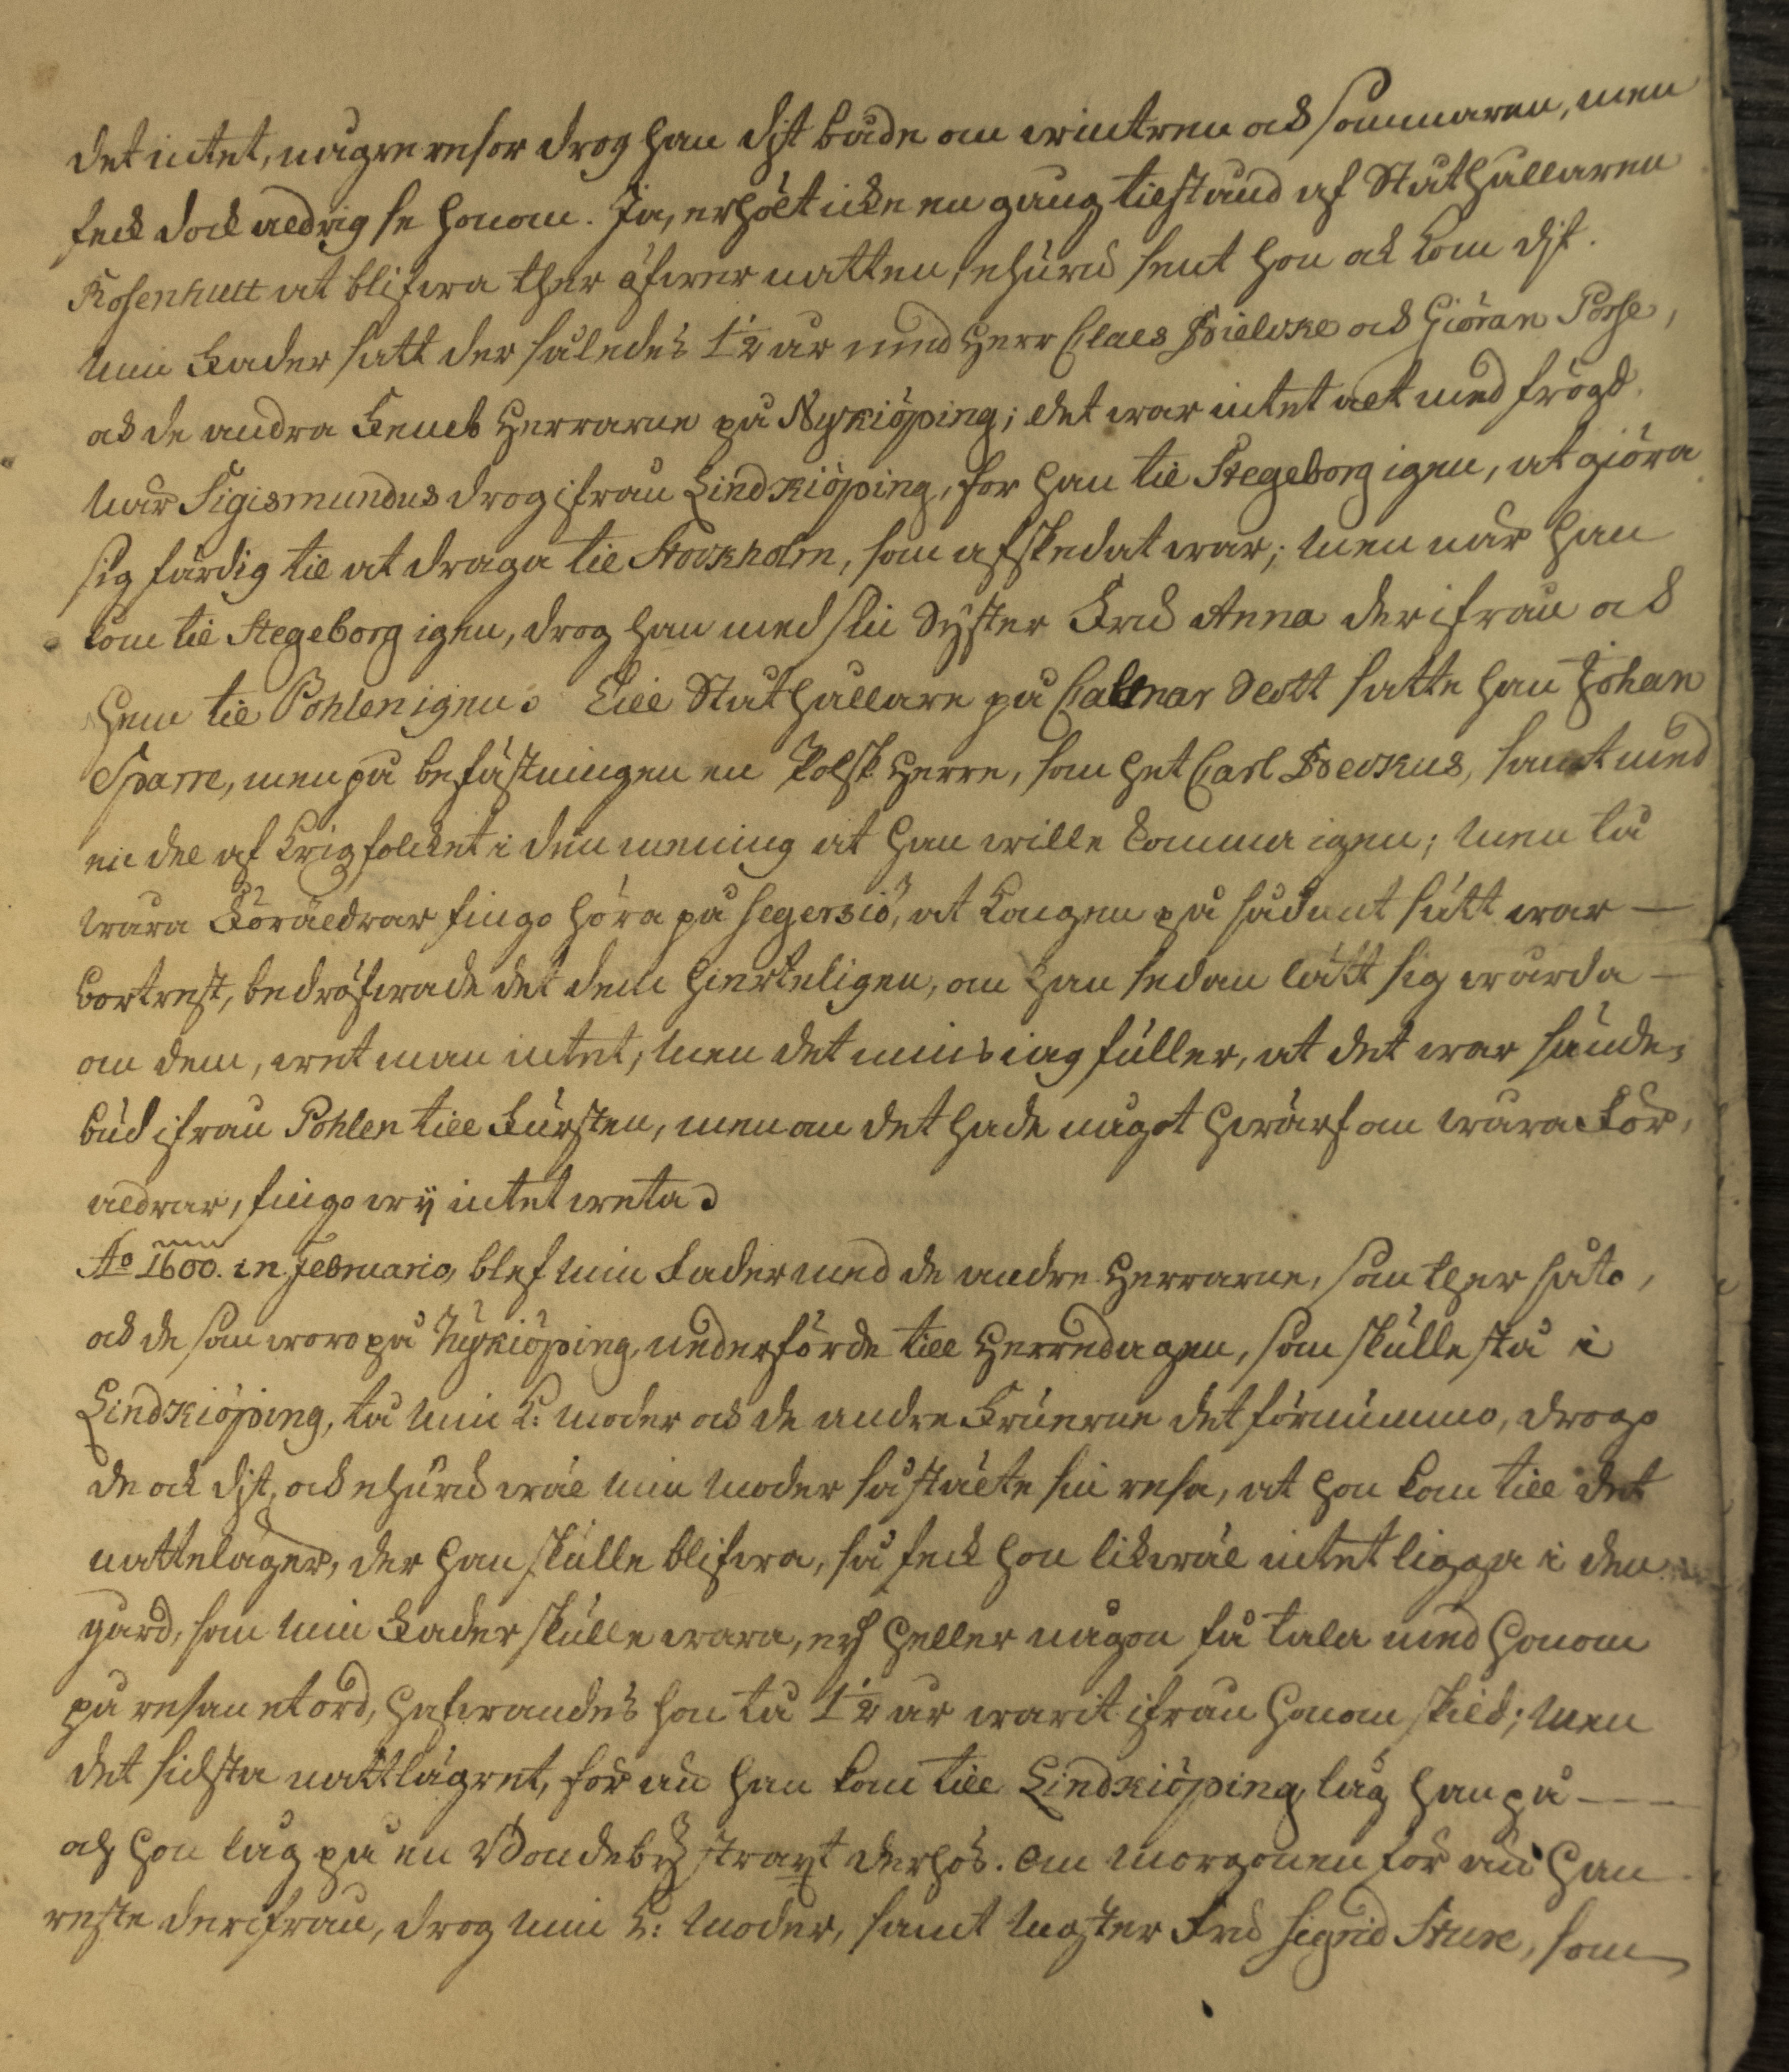 det intet, någre resor drog han dijt både om wintren och sommaren, men
feck dock aldrig se honom. Ja, erhölt icke en gang tilstånd af Ståthållaren
Kosenhult at blifwa ther öfwer natten, ehuru sent hon ock kom dijt.
Min Fader satt der således 1½ år med Herr Claes Bielcke och Giöran Posse,
och de andra Femb Herrarne på Nykiöping; det war intet alt med frögd.
När Sigismundus drog ifrån Lindkiöping, for han til Stegeborg igen, at giöra
sig färdig til at draga til Stockholm, som afskedat war; men när han
kom til Stegeborg igen, drog han med sin Syster Fru Anna der ifrån och
hem til Pohlen igen. Till Ståthållare på Calmar Slott satte han Johan
Sparre, men på befästningen en Polsk Herre, som het Carl Beckus, samt med
en del af Krigsfolcket i den mening at han wille komma igen; Men tå
wåra Föräldrar fingo höra på Segersiö, at Kongen på sådant sätt war —
bortrest, bedröfwade det dem hierteligen, om han sedan lätt sig wårda —
om dem, wet man intet; Men det mins iag fuller, at det war sände-
bud ifrån Pohlen till Fursten, men om det hade något hwärf om wåra För-
äldrar, fingo wÿ intet weta.
Ao 1600. in Februario, blef min Fader med de andre Herrarne, som ther såto,
och de som woro på Nykiöping, nederförde till Herredagen, som skulle stå i
Lindkiöping, tå min K: moder och de andre Fruerne det förnummo, drogo
de ock dijt, och ehuru wäl min moder så stälte sin resa, at hon kom till det
natteläger, der han skulle blifwa, så feck hon likwäl intet ligga i den
gård, som min Fader skulle wara, eij heller någon få tala med honom
på resan et ord, hafwandes hon tå 1½ år warit ifrån honom skild; Men
det sidsta nattlägret, för än han kom till Lindkiöping, låg han på ——
och hon låg på en Bondebÿ straxt derhos. Om morgonen för än han
reste derifrån, drog min K: Moder, samt Moster Fru Sigrid Sture, som